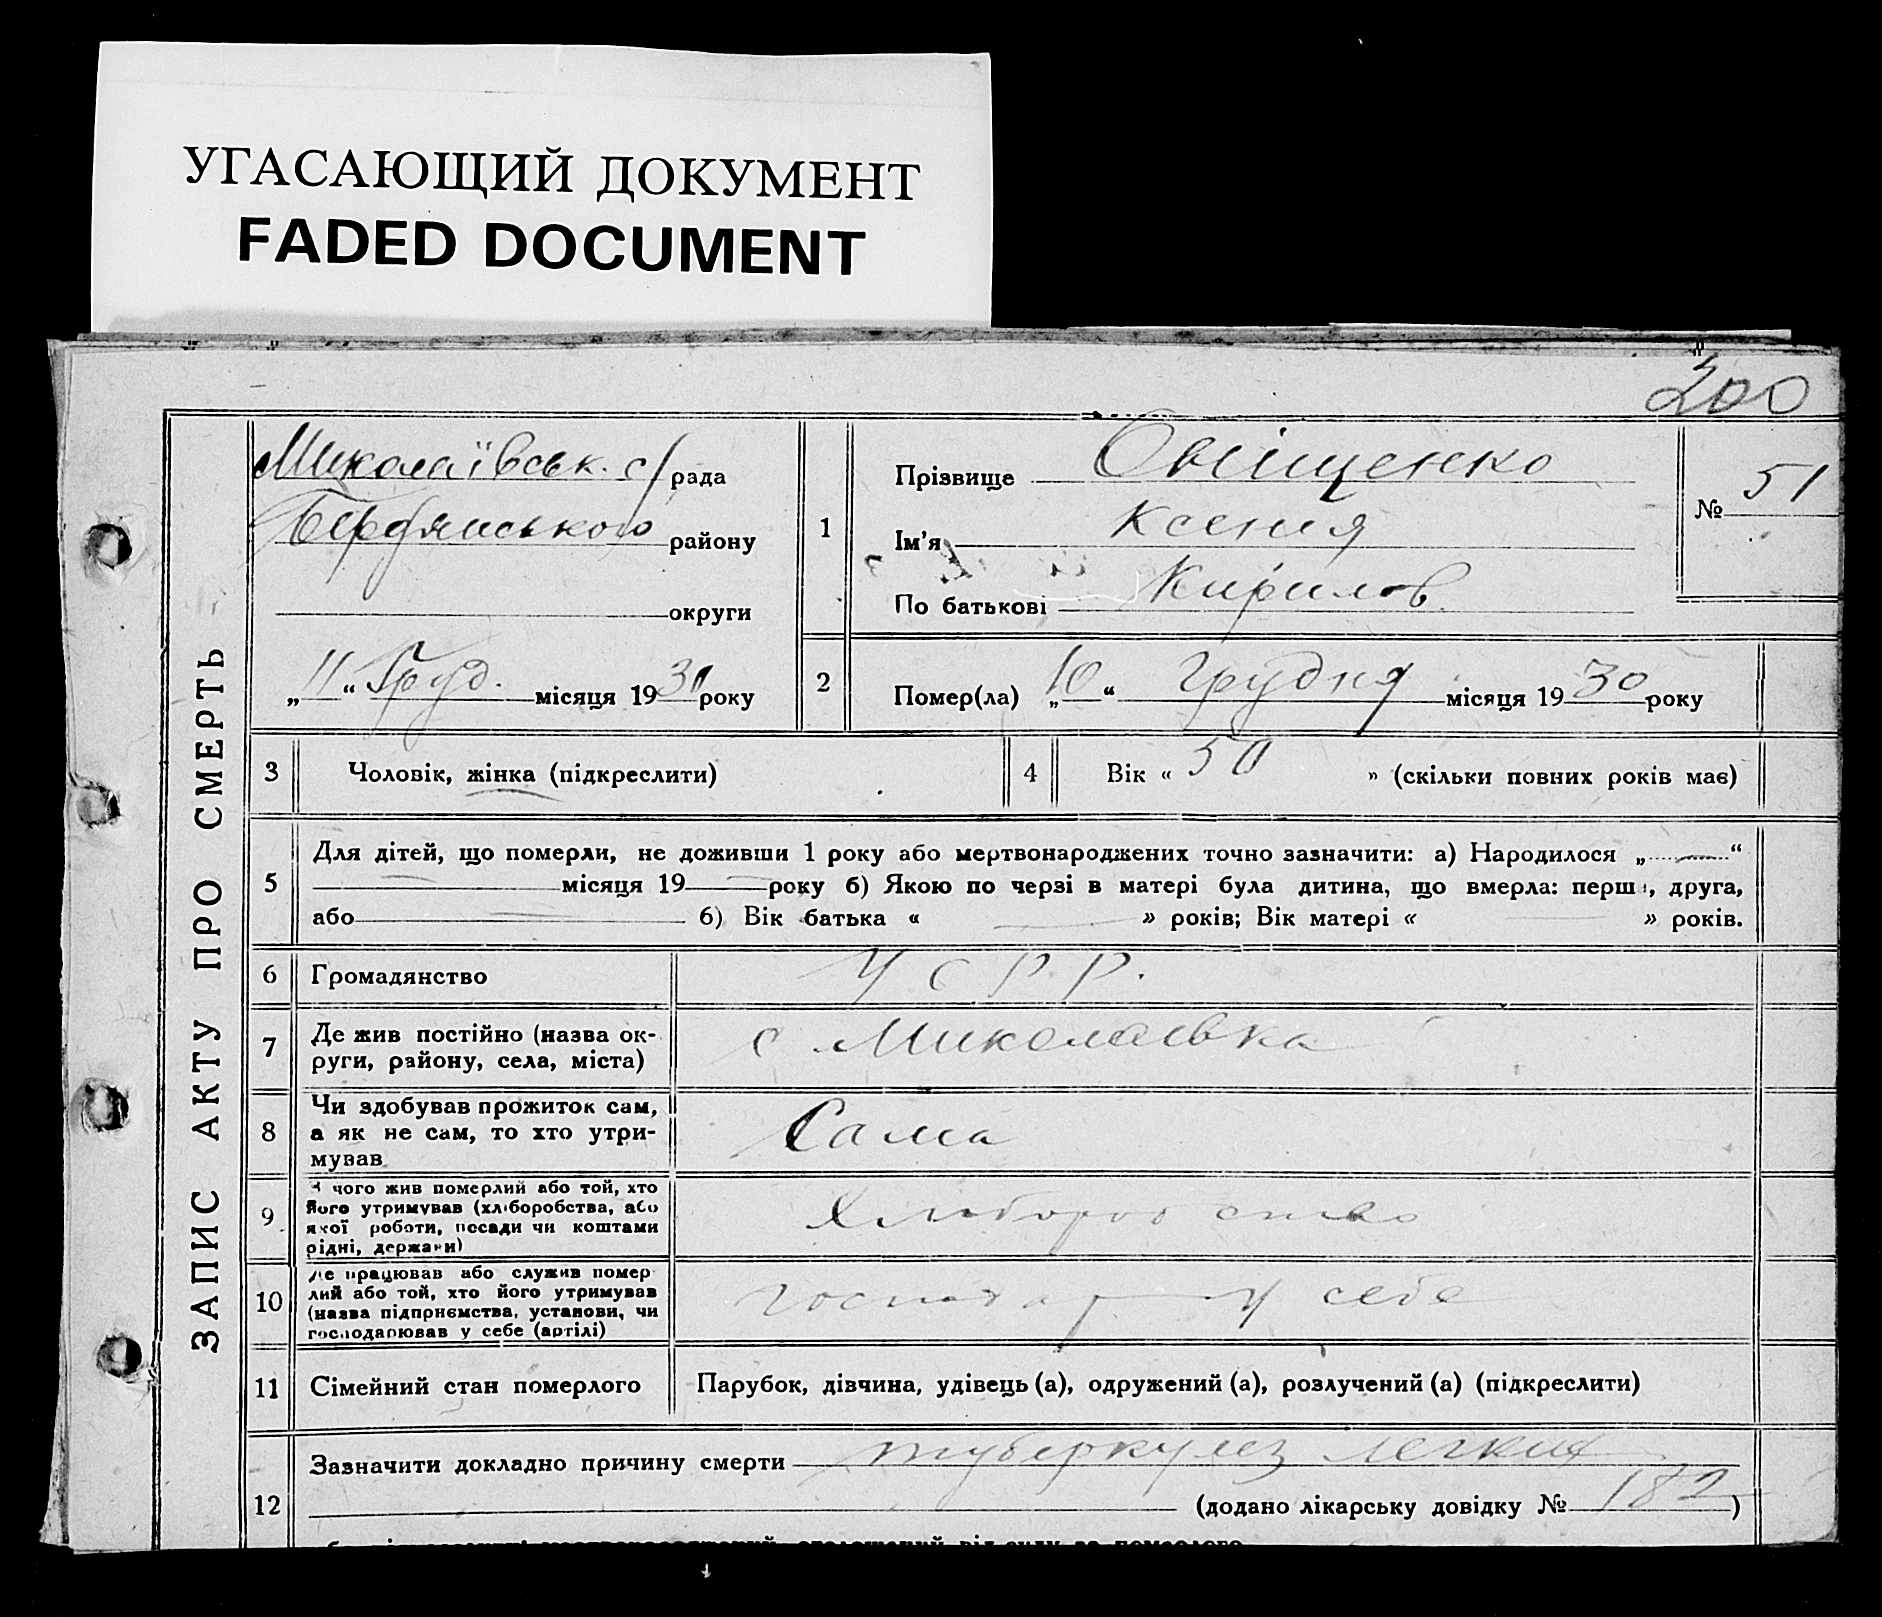 УГАСАЮЩИЙ ДОКУМЕНТ
FADED DOCUMENT
200
ЗАПИС АКТУ ПРО СМЕРТЬ
Миколаївськ. с/рада
Бердянського району
округи
„11“ Груд. місяця 1930 року
1
Прізвище Овіщенко
Ім'я Ксения
По батькові Кирилов
№ 51
2
Помер(ла) „10“ грудня місяця 1930 року
3 Чоловік, жінка (підкреслити)
4 Вік « 50 » (скільки повних років має)
5
Для дітей, що померли, не доживши 1 року або мертвонароджених точно зазначити: а) Народилося „ “
місяця 19 року б) Якою по черзі в матері була дитина, що вмерла: перша, друга,
або б) Вік батька « » років; Вік матері « » років.
6 Громадянство УСРР.
7 Де жив постійно (назва ок-
руги, району, села, міста)
с Миколаївка
8 Чи здобував прожиток сам,
а як не сам, то хто утри-
мував
Сама
9 З чого жив померлий або той, хто
його утримував (хліборобства, або
якої роботи, посади чи коштами
рідні, держави)
Хлиборобство
10 Де працював або служив помер
лий або той, хто його утримував
(назва підприємства, установи, чи
господарював у себе (артілі)
господар у себе
11 Сімейний стан померлого
Парубок, дівчина, удівець (а), одружений (а), розлучений (а) (підкреслити)
12 Зазначити докладно причину смерти туберкулез легких
(додано лікарську довідку № 182)